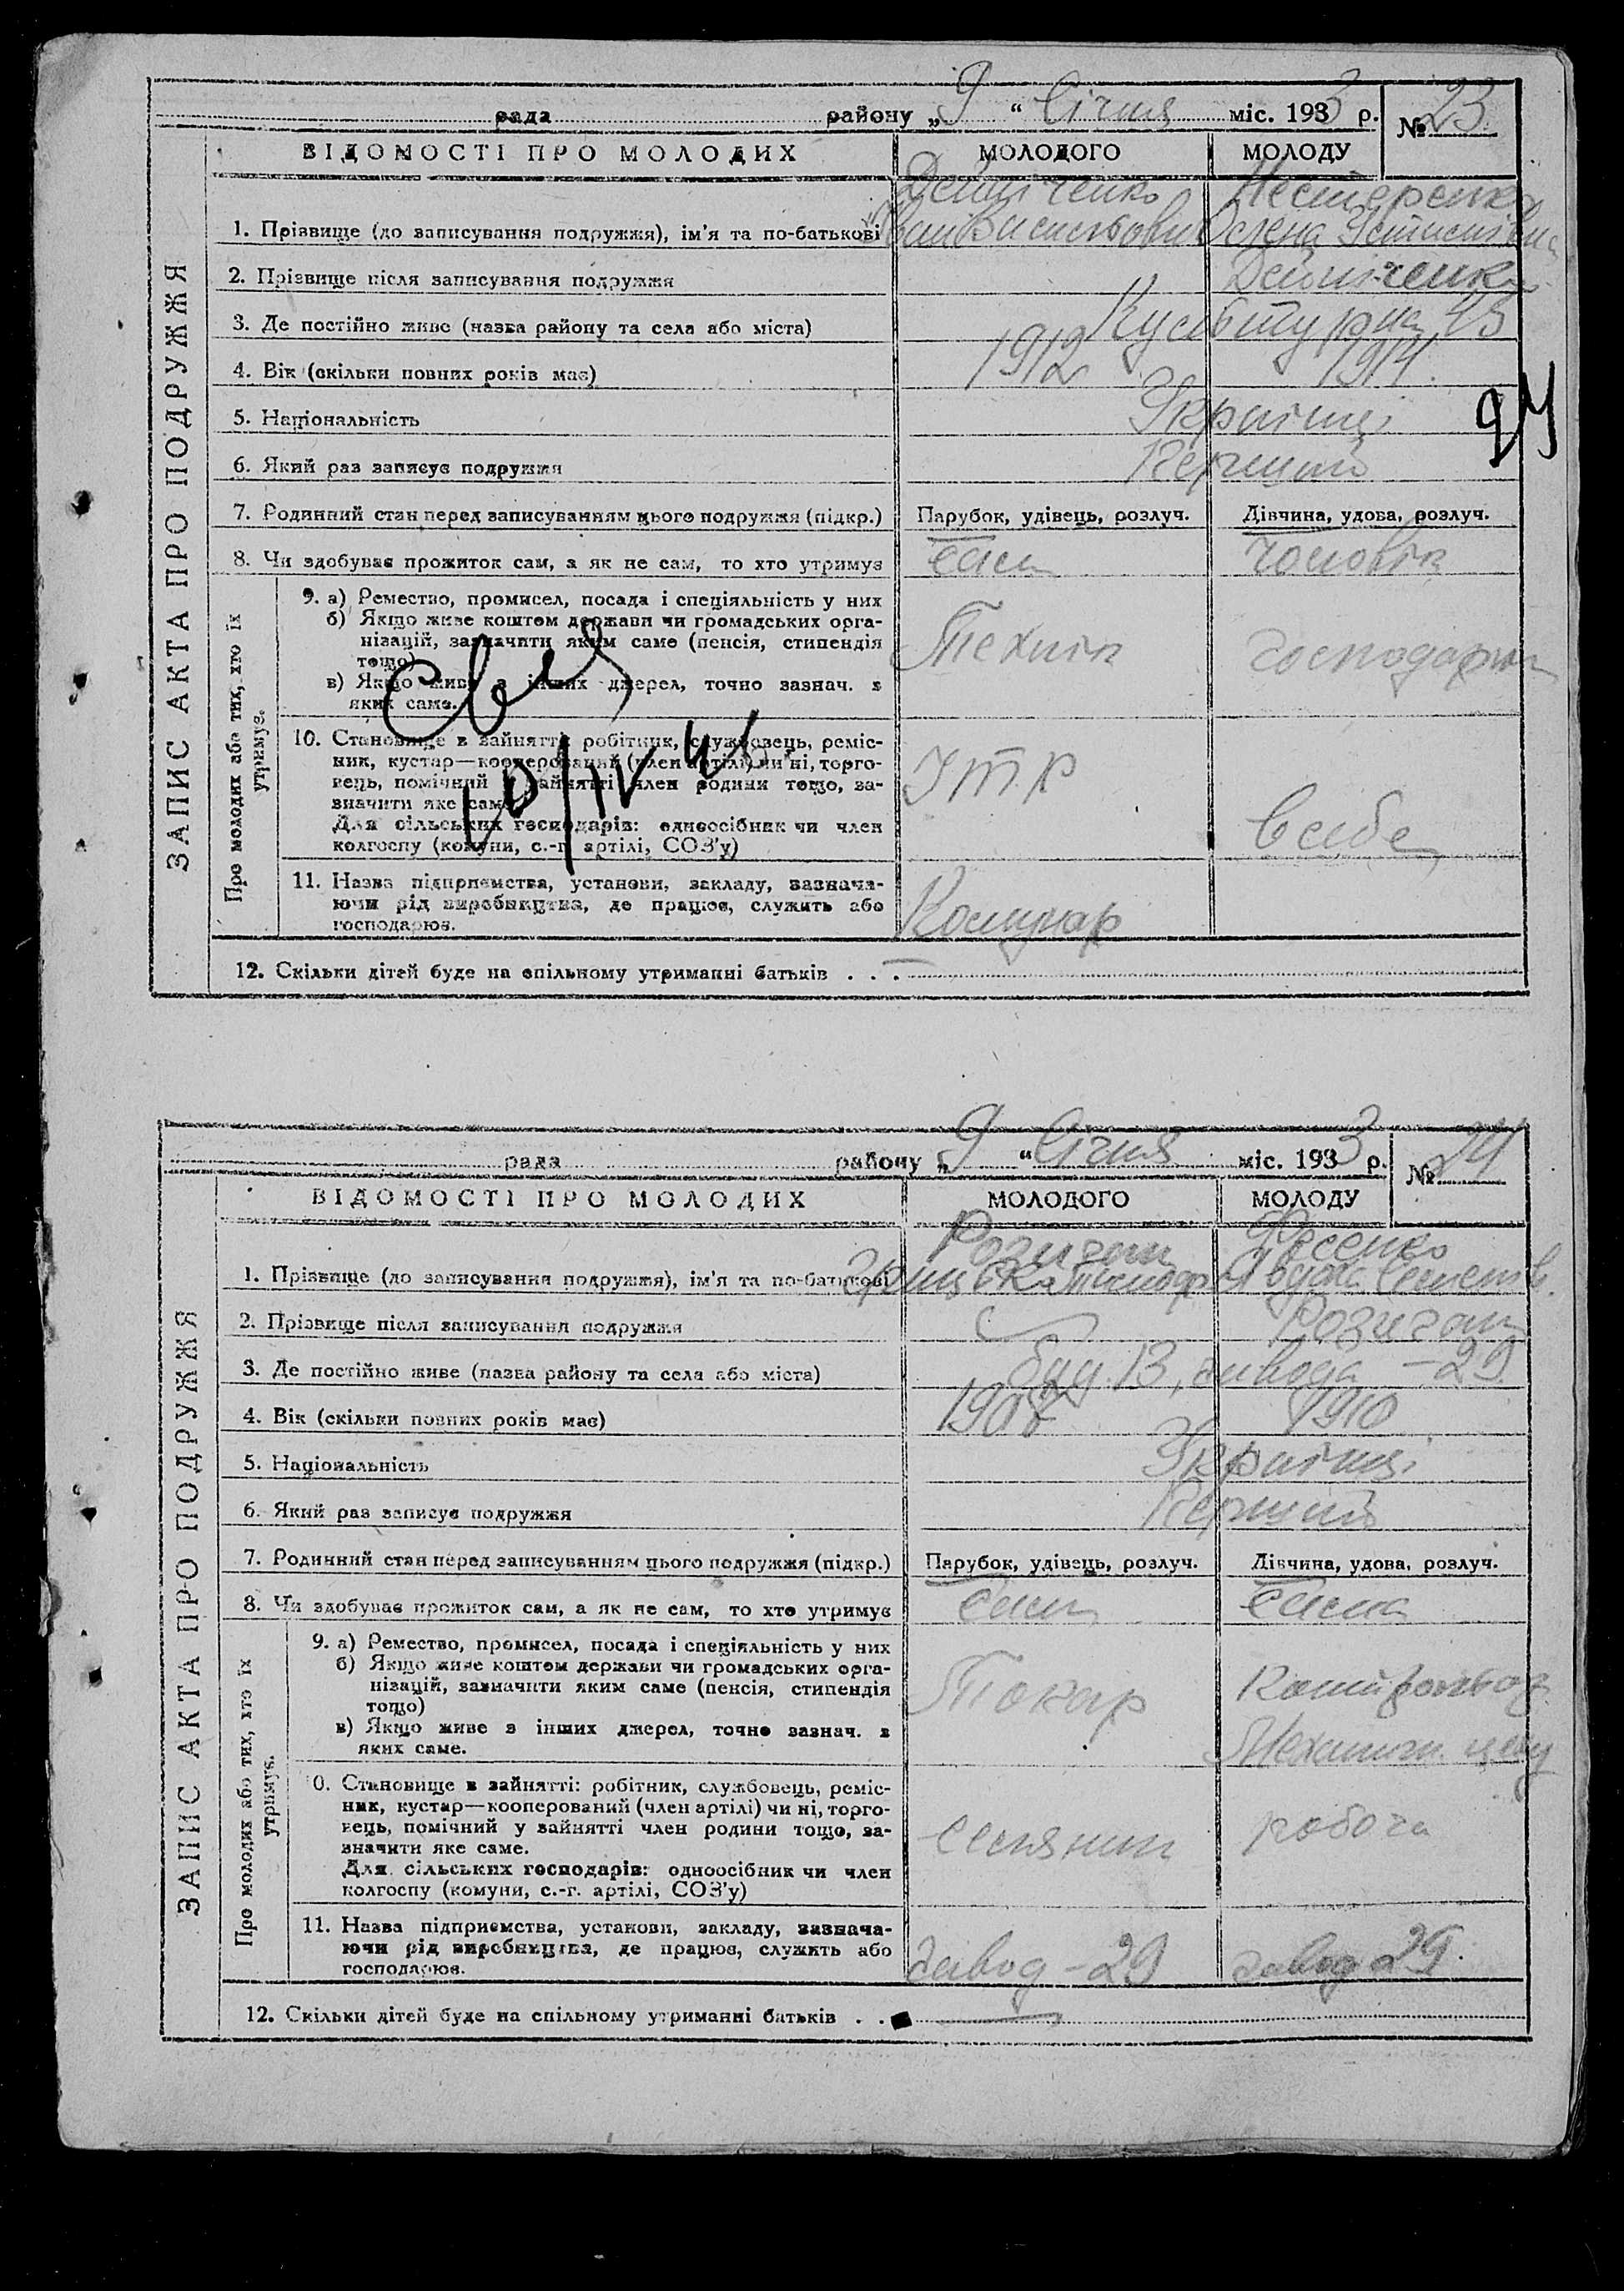 рада району „9“ Січня міс. 1933 р. № 23
ВІДОМОСТІ ПРО МОЛОДИХ МОЛОДОГО МОЛОДУ
Нестеренко
1. Прізвище (до записування подружжя), ім'я та по-батькові Олена
2. Прізвище після записування подружжя
3. Де постійно живе (назва району та села або міста) Культурна 45
4. Вік (скільки повних років має) 1912 1914.
5. Національність Українці
6. Який раз записує подружжя Перший
7. Родинний стан перед записуванням цього подружжя (підкр.) Парубок, удівець, розлуч. Дівчина, удова, розлуч.
8. Чи здобуває прожиток сам, а як не сам, то хто утримує Сам Чоловік
ЗАПИС АКТА ПРО ПОДРУЖЖЯ
Про молодих або тих, хто їх утримує.
9. а) Ремество, промисел, посада і спеціяльність у них
б) Якщо живе коштом держави чи громадських орга-
нізацій, зазначити яким саме (пенсія, стипендія
тощо)
в) Якщо живе з інших джерел, точно зазнач. з
яких саме.
Технік Господарка
10. Становище в зайнятті: робітник, службовець, реміс-
ник, кустар—кооперований (член артілі) чи ні, торго-
вець, помічний у зайнятті член родини тощо, за-
значити яке саме.
Для сільських господарів: одноосібник чи член
колгоспу (комуни, с.-г. артілі, СОЗ'у)
ІТР
11. Назва підприємства, установи, закладу, зазнача-
ючи рід виробництва, де працює, служить або
господарює.
Комунар
12. Скільки дітей буде на спільному утриманні батьків . . . —
рада району „9“ Січня міс. 1933 р. № 24
ВІДОМОСТІ ПРО МОЛОДИХ МОЛОДОГО МОЛОДУ
Фесенко
1. Прізвище (до записування подружжя), ім'я та по-батькові
2. Прізвище після записування подружжя
3. Де постійно живе (назва району та села або міста) буд. 13, завода – 29
4. Вік (скільки повних років має) 1910
5. Національність Українці
6. Який раз записує подружжя Перший
7. Родинний стан перед записуванням цього подружжя (підкр.) Парубок, удівець, розлуч. Дівчина, удова, розлуч.
8. Чи здобуває прожиток сам, а як не сам, то хто утримує Сам Сама
ЗАПИС АКТА ПРО ПОДРУЖЖЯ
Про молодих або тих, хто їх утримує.
9. а) Ремество, промисел, посада і спеціяльність у них
б) Якщо живе коштом держави чи громадських орга-
нізацій, зазначити яким саме (пенсія, стипендія
тощо)
в) Якщо живе з інших джерел, точно зазнач. з
яких саме.
Токар
цеху
10. Становище в зайнятті: робітник, службовець, реміс-
ник, кустар—кооперований (член артілі) чи ні, торго-
вець, помічний у зайнятті член родини тощо, за-
значити яке саме.
Для сільських господарів: одноосібник чи член
колгоспу (комуни, с.-г. артілі, СОЗ'у)
Селянин робоча
11. Назва підприємства, установи, закладу, зазнача-
ючи рід виробництва, де працює, служить або
господарює.
Завод – 29 завод 29.
12. Скільки дітей буде на спільному утриманні батьків . . —